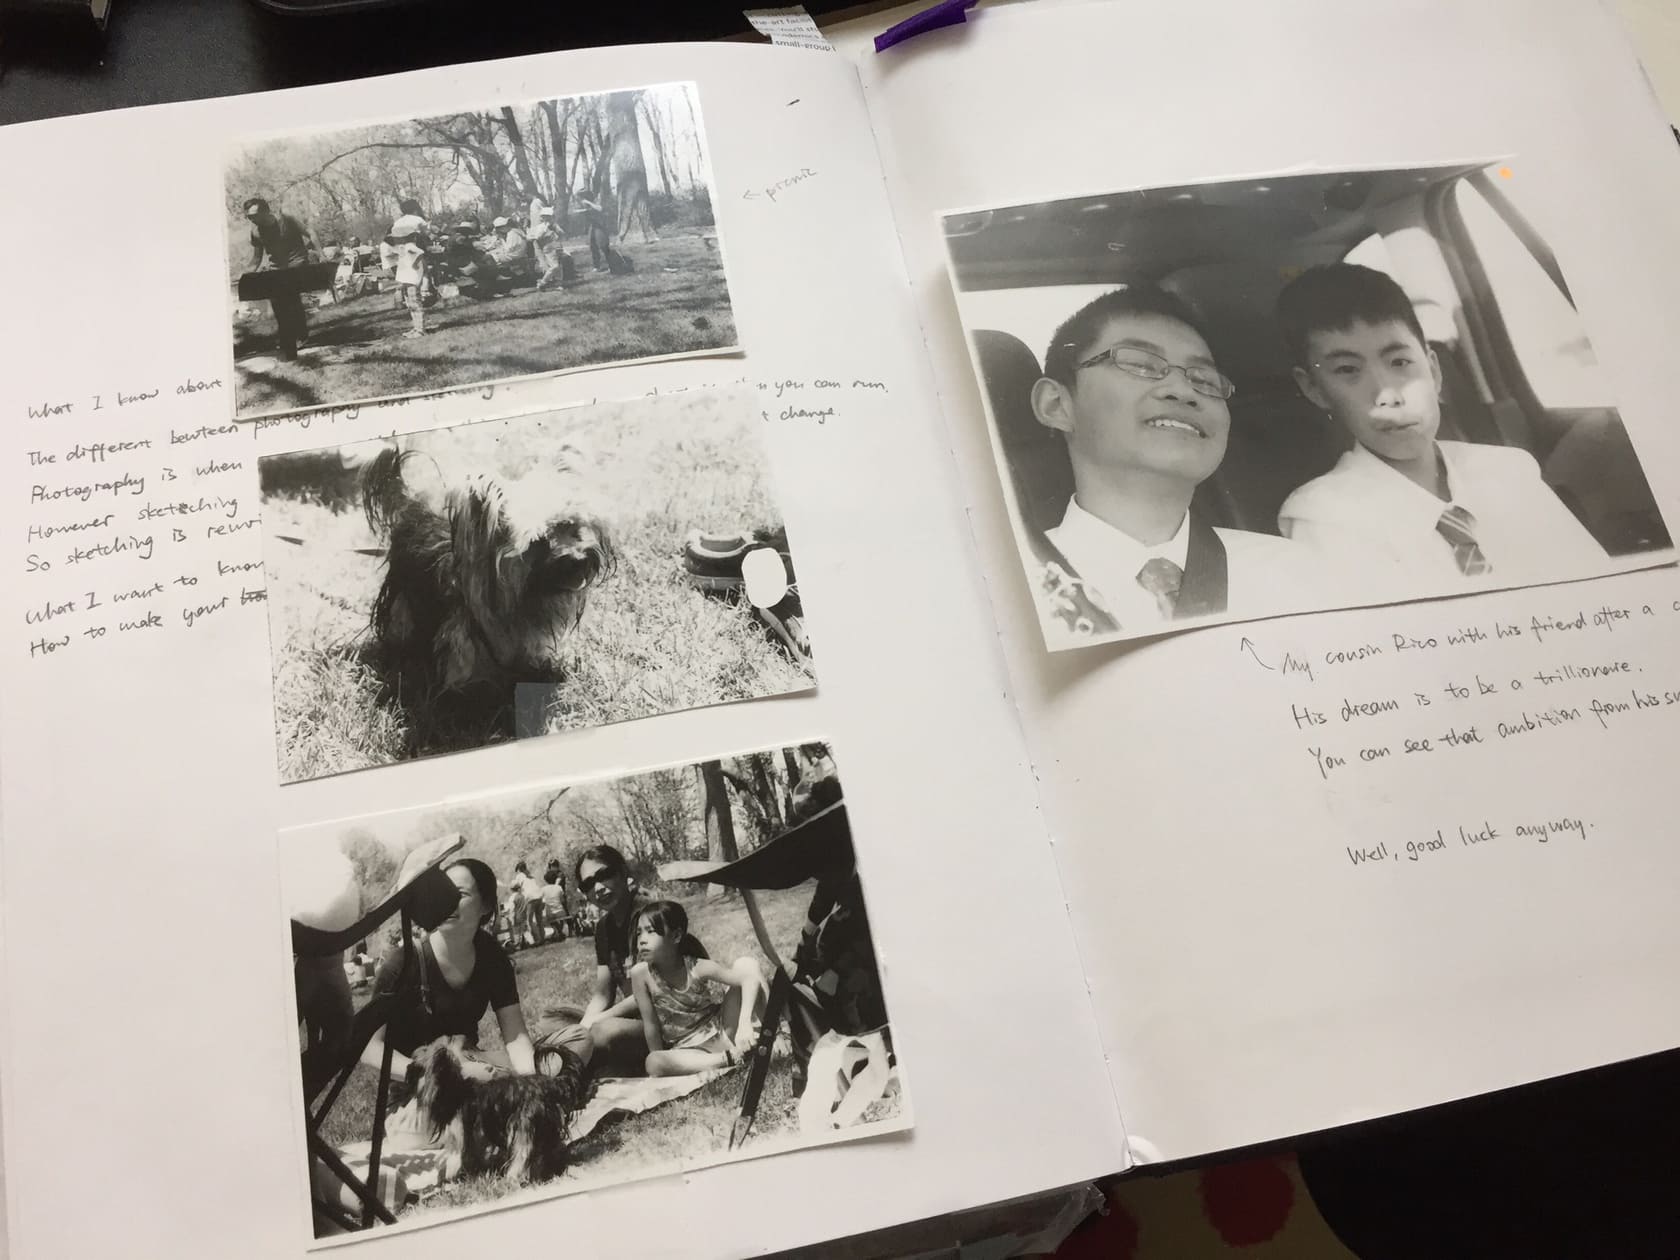 the-art facili
small-group l
← picnic
What I know about
The different bewteen photography and sketching.
Photography is when
However sketching
So sketching is
What I want to know
How to make your
you can run.
change.
My cousin Rico with his friend after a c
His dream is to be a trillionare.
You can see that ambition from his sm
Well, good luck anyway.